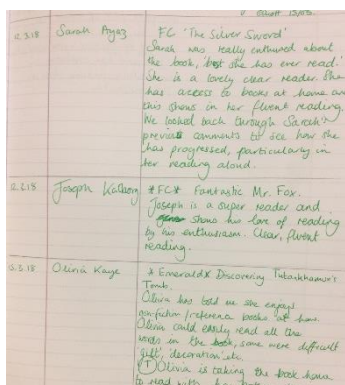 Elliott 15/03.
12.3.18 Sarah Ayaz FC 'The Silver Sword'
Sarah was really enthused about
the book, 'best she has ever read.'
She is a lovely clear reader. She
has access to books at home and
this shows in her fluent reading.
We looked back through Sarah's
previous comments to see how she
has progressed, particularly in
her reading aloud.
12.2.18 Joseph *FC* Fantastic Mr. Fox.
Joseph is a super reader and
shows his love of reading
by his enthusiasm. Clear, fluent
reading.
Olivia Kaye * Emerald* Discovering Tutankhamun's
Tomb.
Olivia has told me she enjoys
non-fiction/reference books at home.
Olivia could easily read all the
words in the book, some were difficult
'gilt', 'decoration' etc.
(T) Olivia is taking the book home
to read with her